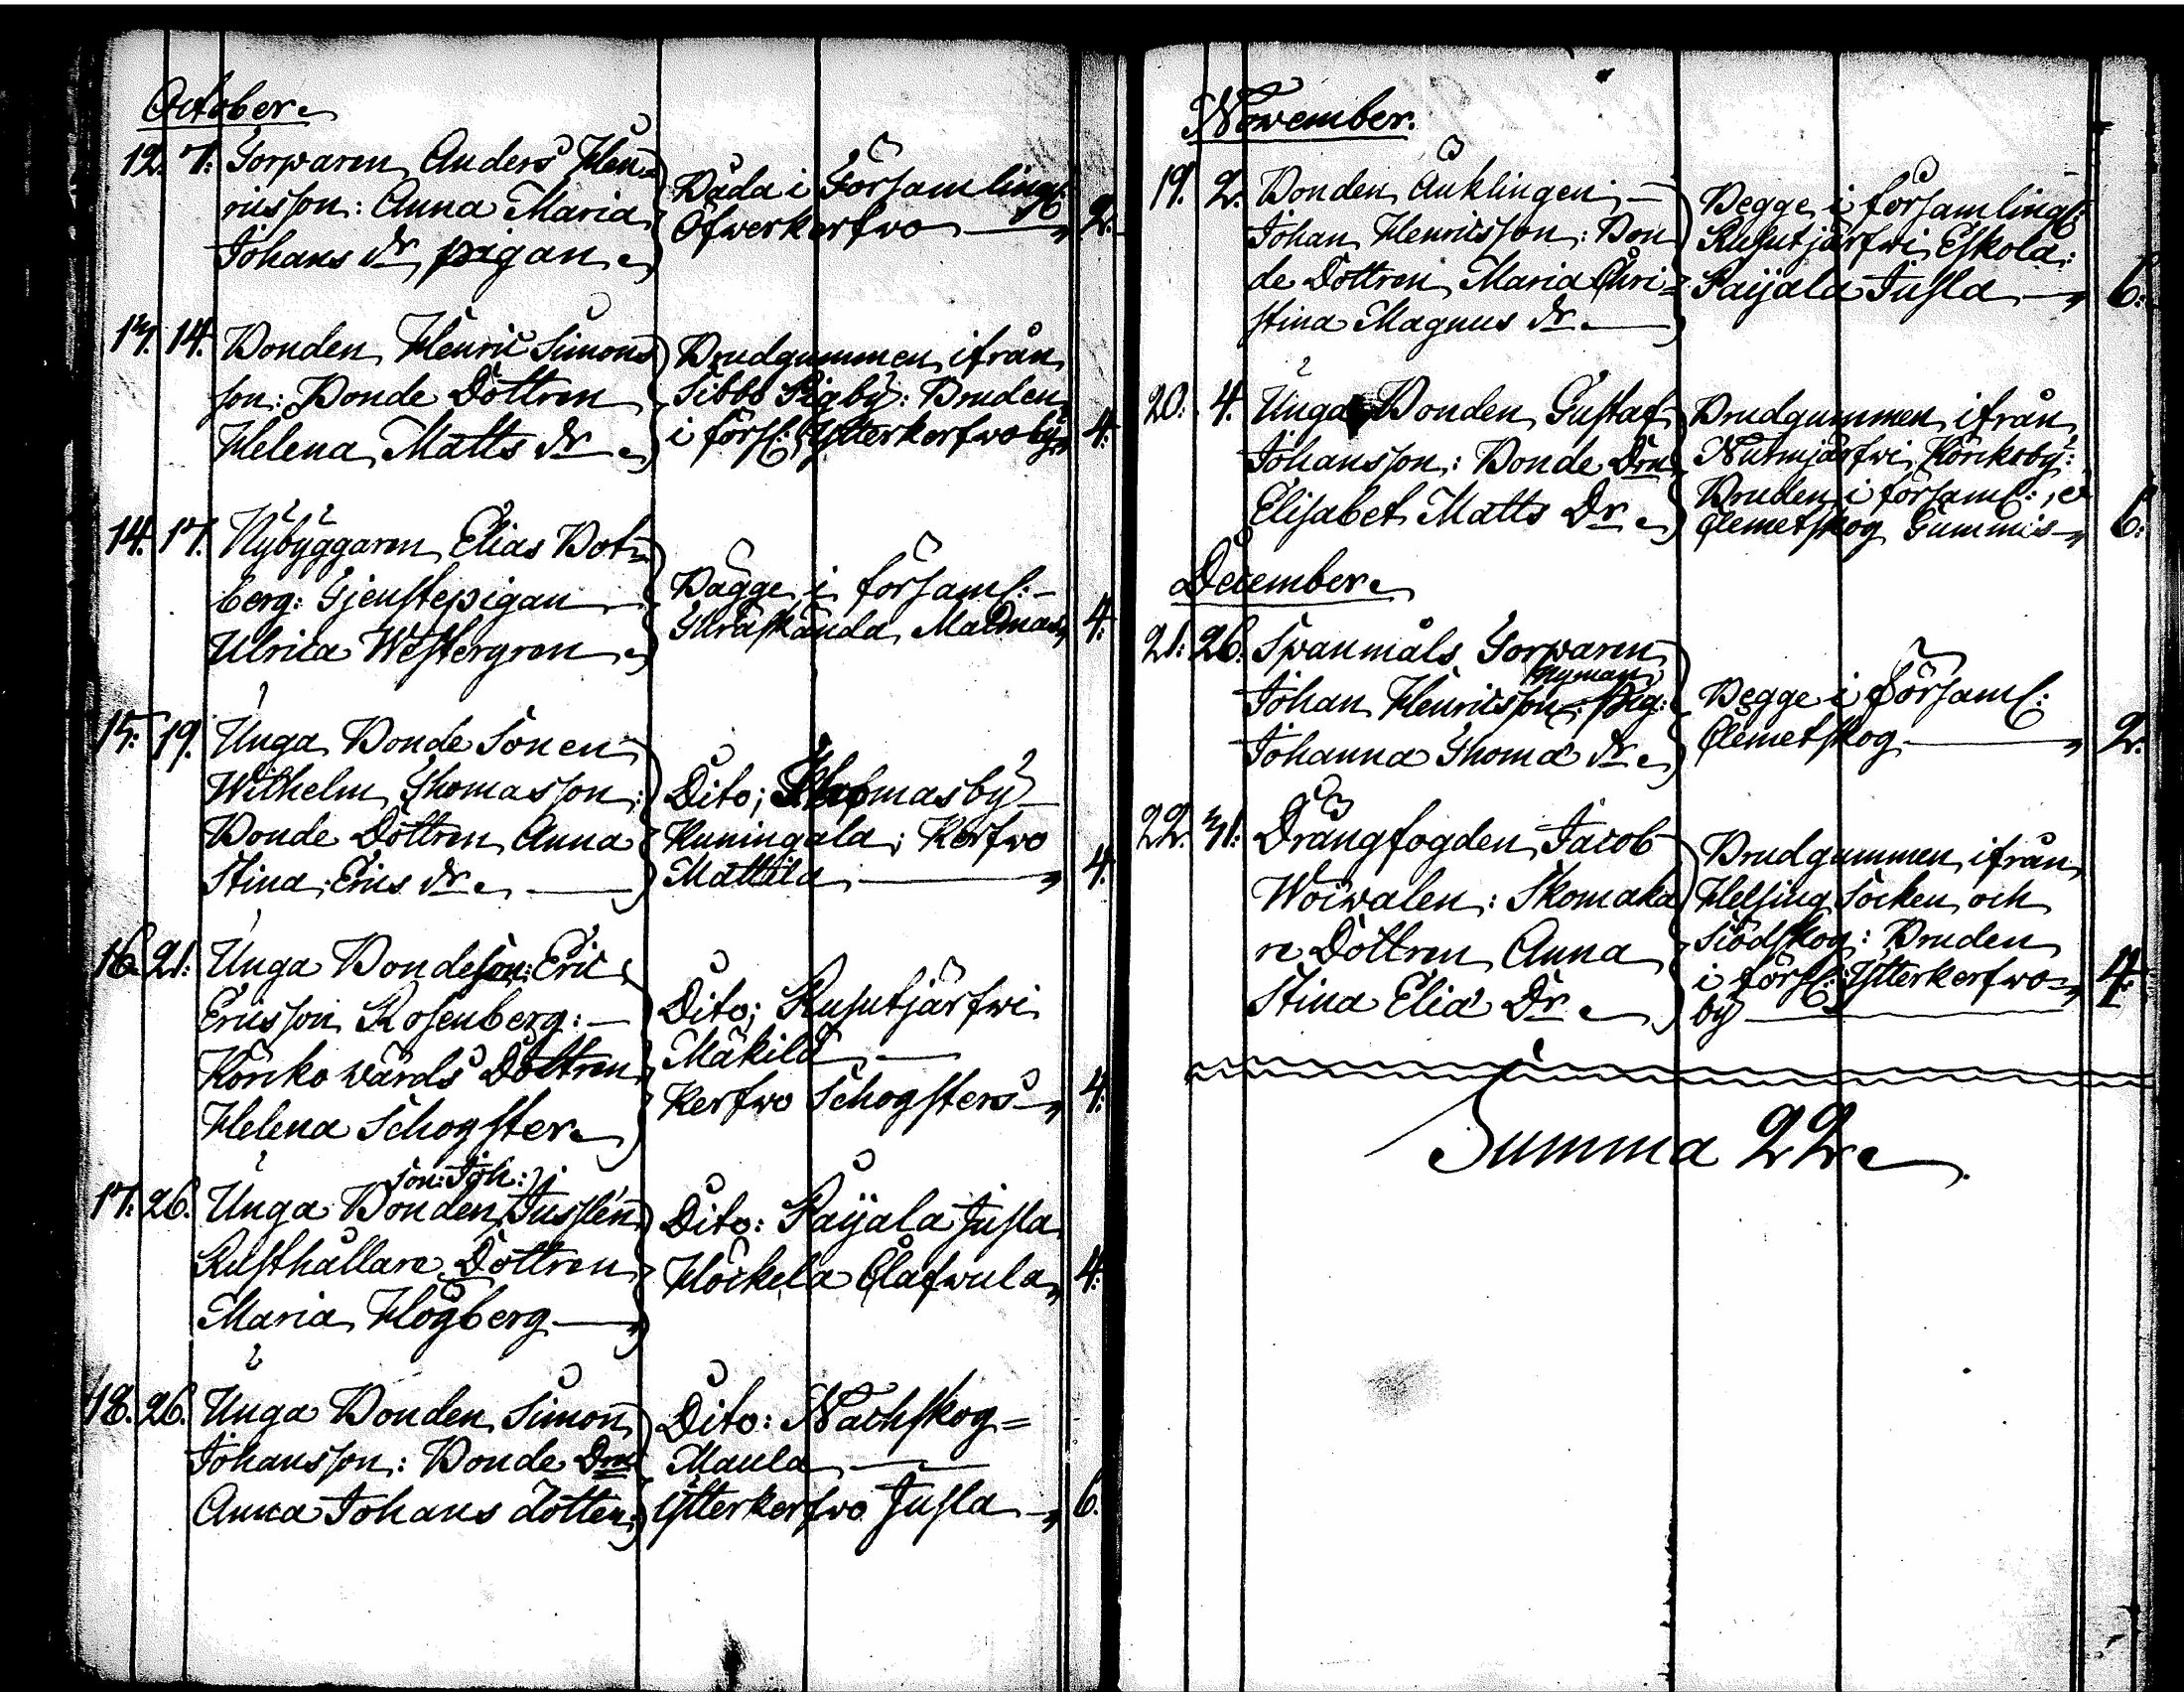 October.
12. 7. Torparen Anders Hen=
ricsson: Anna Maria
Johans dr pigan
Båda i Församlingl:
Öfwerkerfwo 2.
13. 14. Bonden Henric Simons
son: Bonde Dottren
Helena Matts dr
Brudgummen ifrån
Sibbo Pigby: Bruden
i förs: Ytterkerfwoby 4.
14. 17. Nybyggaren Elias Bot=
berg: Tjenstepigan
Ulrica Westergren
Bägge i församl:
Träskända Malmas 4:
15. 19. Unga Bonde Sonen
Wilhelm Thomasson:
Bonde Dottren Anna
Stina Erics dr
Dito; Thomasby
Kuningala; Kerfwo
Mattila 4.
16. 21. Unga Bondeson: Eric
Ericsson Rosenberg:
Kyrko wärds Dottren
Helena Schogster
Dito; Rusutjärfwi
Mäkilä
Kerfwo Schogsters 4.
son: Joh:
17. 26. Unga Bonden Juslén
Rusthållare Dottren
Maria Högberg
Dito: Paijala Jusla
Höckela Olafwula 4:
18. 26. Unga Bonden Simon
Johansson: Bonde Drn
Anna Johans dotter
Dito: Nachskog=
Maula
Ytterkerfwo Jusla 6.
November.
19. 2. Bonden Änklingen
Johan Henricsson: Bon
de Dottren Maria Chri=
stina Magnus dr
Begge i församlingl:
Rusutjärfwi Eskola:
Paijala Jusla 6:
20. 4. Unga Bonden Gustaf
Johansson: Bonde Drn
Elisabet Matts Dr
Brudgummen ifrån
Nurmijärfwi Kyrkoby:
Bruden i församl:
Clemetskog Gummis 6:
December.
21. 26. Spanmåls Torparen
Nyman
Johan Henricsson: Pig:
Johanna Thomæ dr
Begge i församl:
Clemetskog 2.
22. 31. Drängfogden Jacob
Woiwalen: Skomaka
re Dottren Anna
Stina Eliæ Dr
Brudgummen ifrån
Helsing Socken och
Siödskog: Bruden
i förs: Ytterkerfwo=
by 4.
Summa 22